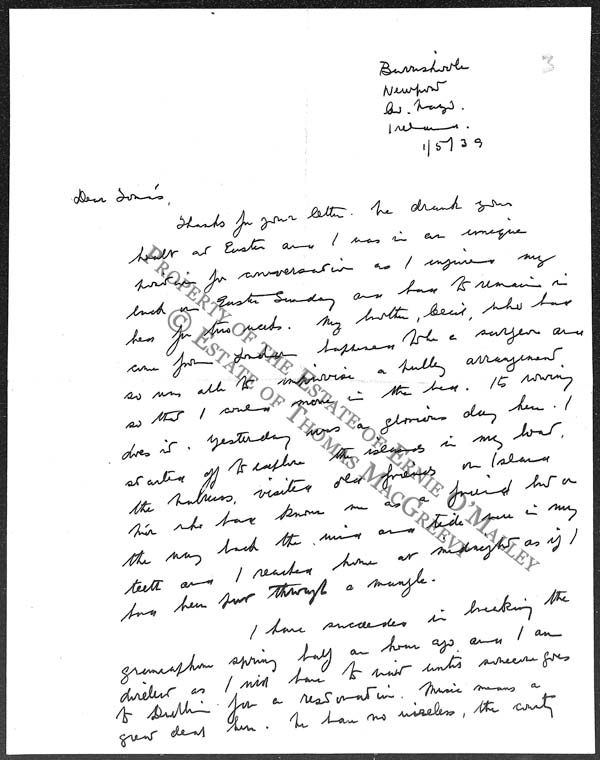 3
Burrishoole
Newport
Co. Mayo.
Ireland.
1/5/39
Dear Tomás,
Thanks for your letter. We drank your
health at Easter and I was in an unique
position for conversation as I injured my
back on Easter Sunday and had to remain in
bed for two weeks. My brother, Cecil, who had
come from London happened to be a surgeon and
so was able to improvise a pulley arrangement
so that I could move in the bed. Its rowing
does it. Yesterday was a glorious day here. I
started off to explore the islands in my boat,
the visited old friends on Island
Mór who have known me as a friend but on
the way back the wind and tide were in my
teeth and I reached home at midnight as if I
had been put through a mangle.
I have succeeded in breaking the
gramophone spring half an hour ago and I am
desolate as I will have to wait until someone goes
to Dublin for a restoration. Music means a
great deal here. We have no wireless, the
PROPERTY OF THE ESTATE OF ERNIE O'MALLEY
© ESTATE OF THOMAS MACGREEVY